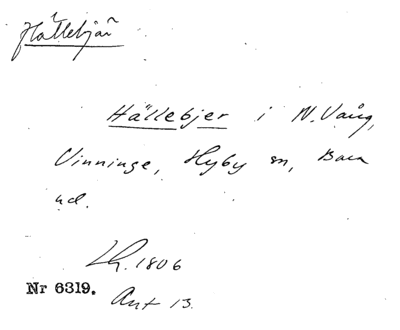 Hällebjär
Hällebjer i N. Vång,
Vinninge, Hyby sn, Bara
hd.
Lh. 1806
Nr 6319.
Ant 13.